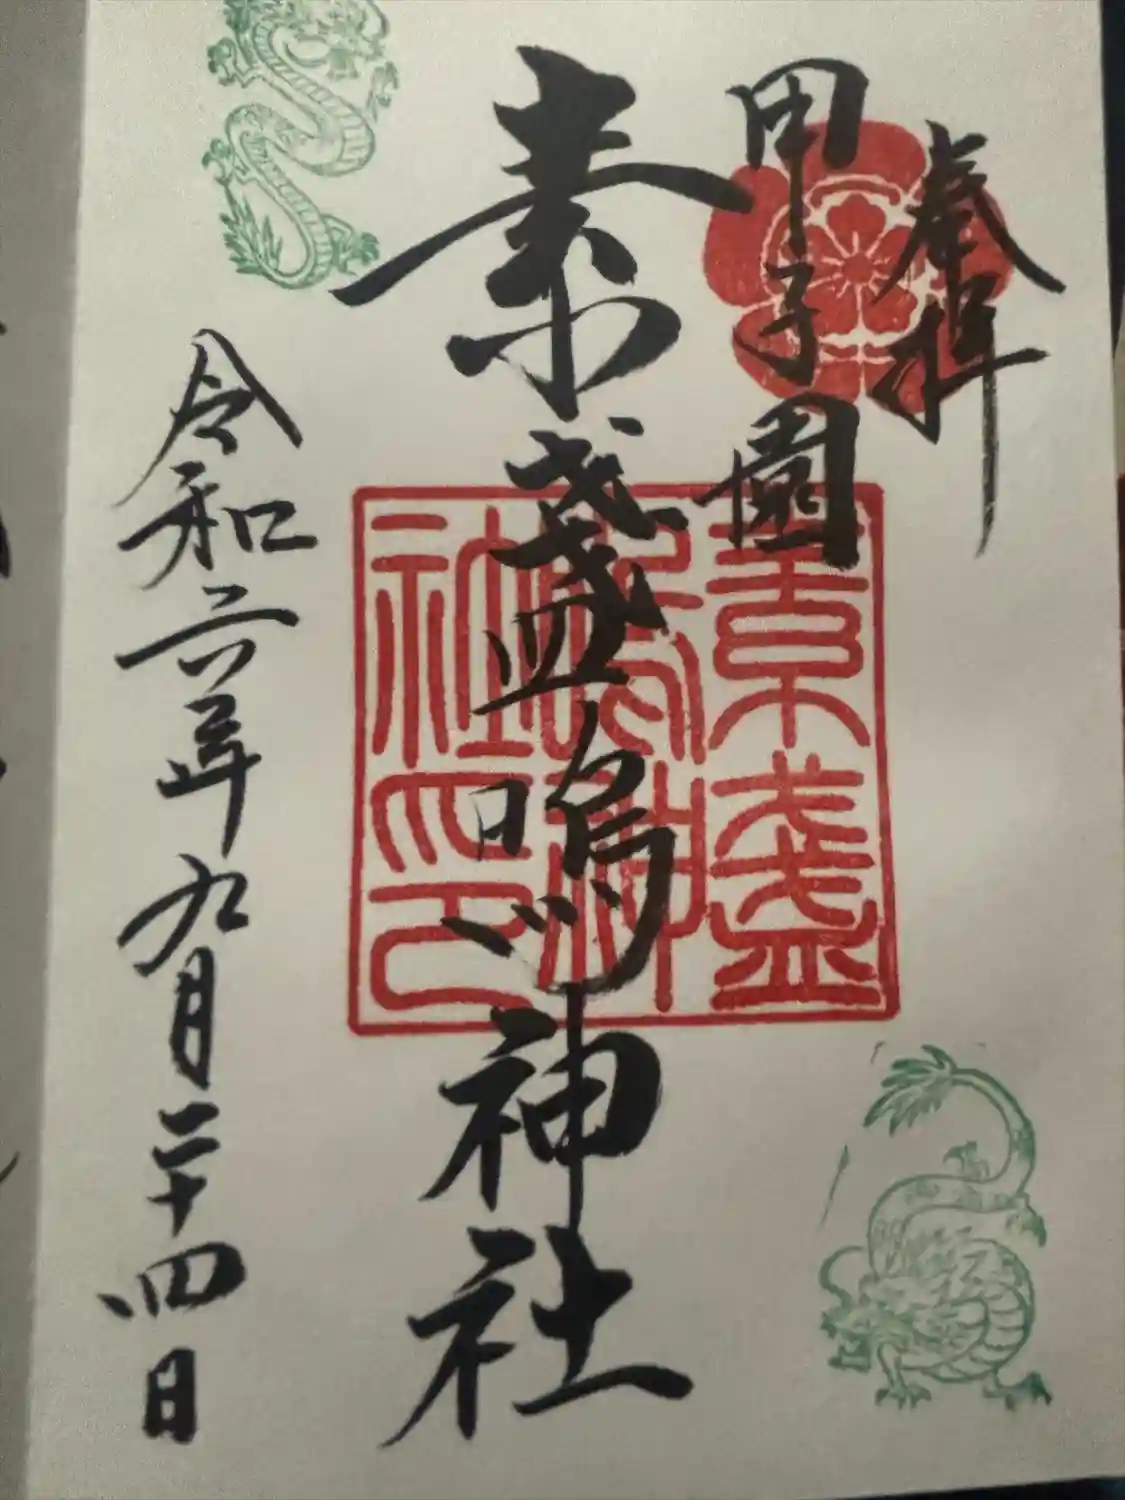 奉拝
甲子園
素盞嗚神社
素盞
嗚神
社印
令和六年九月二十四日